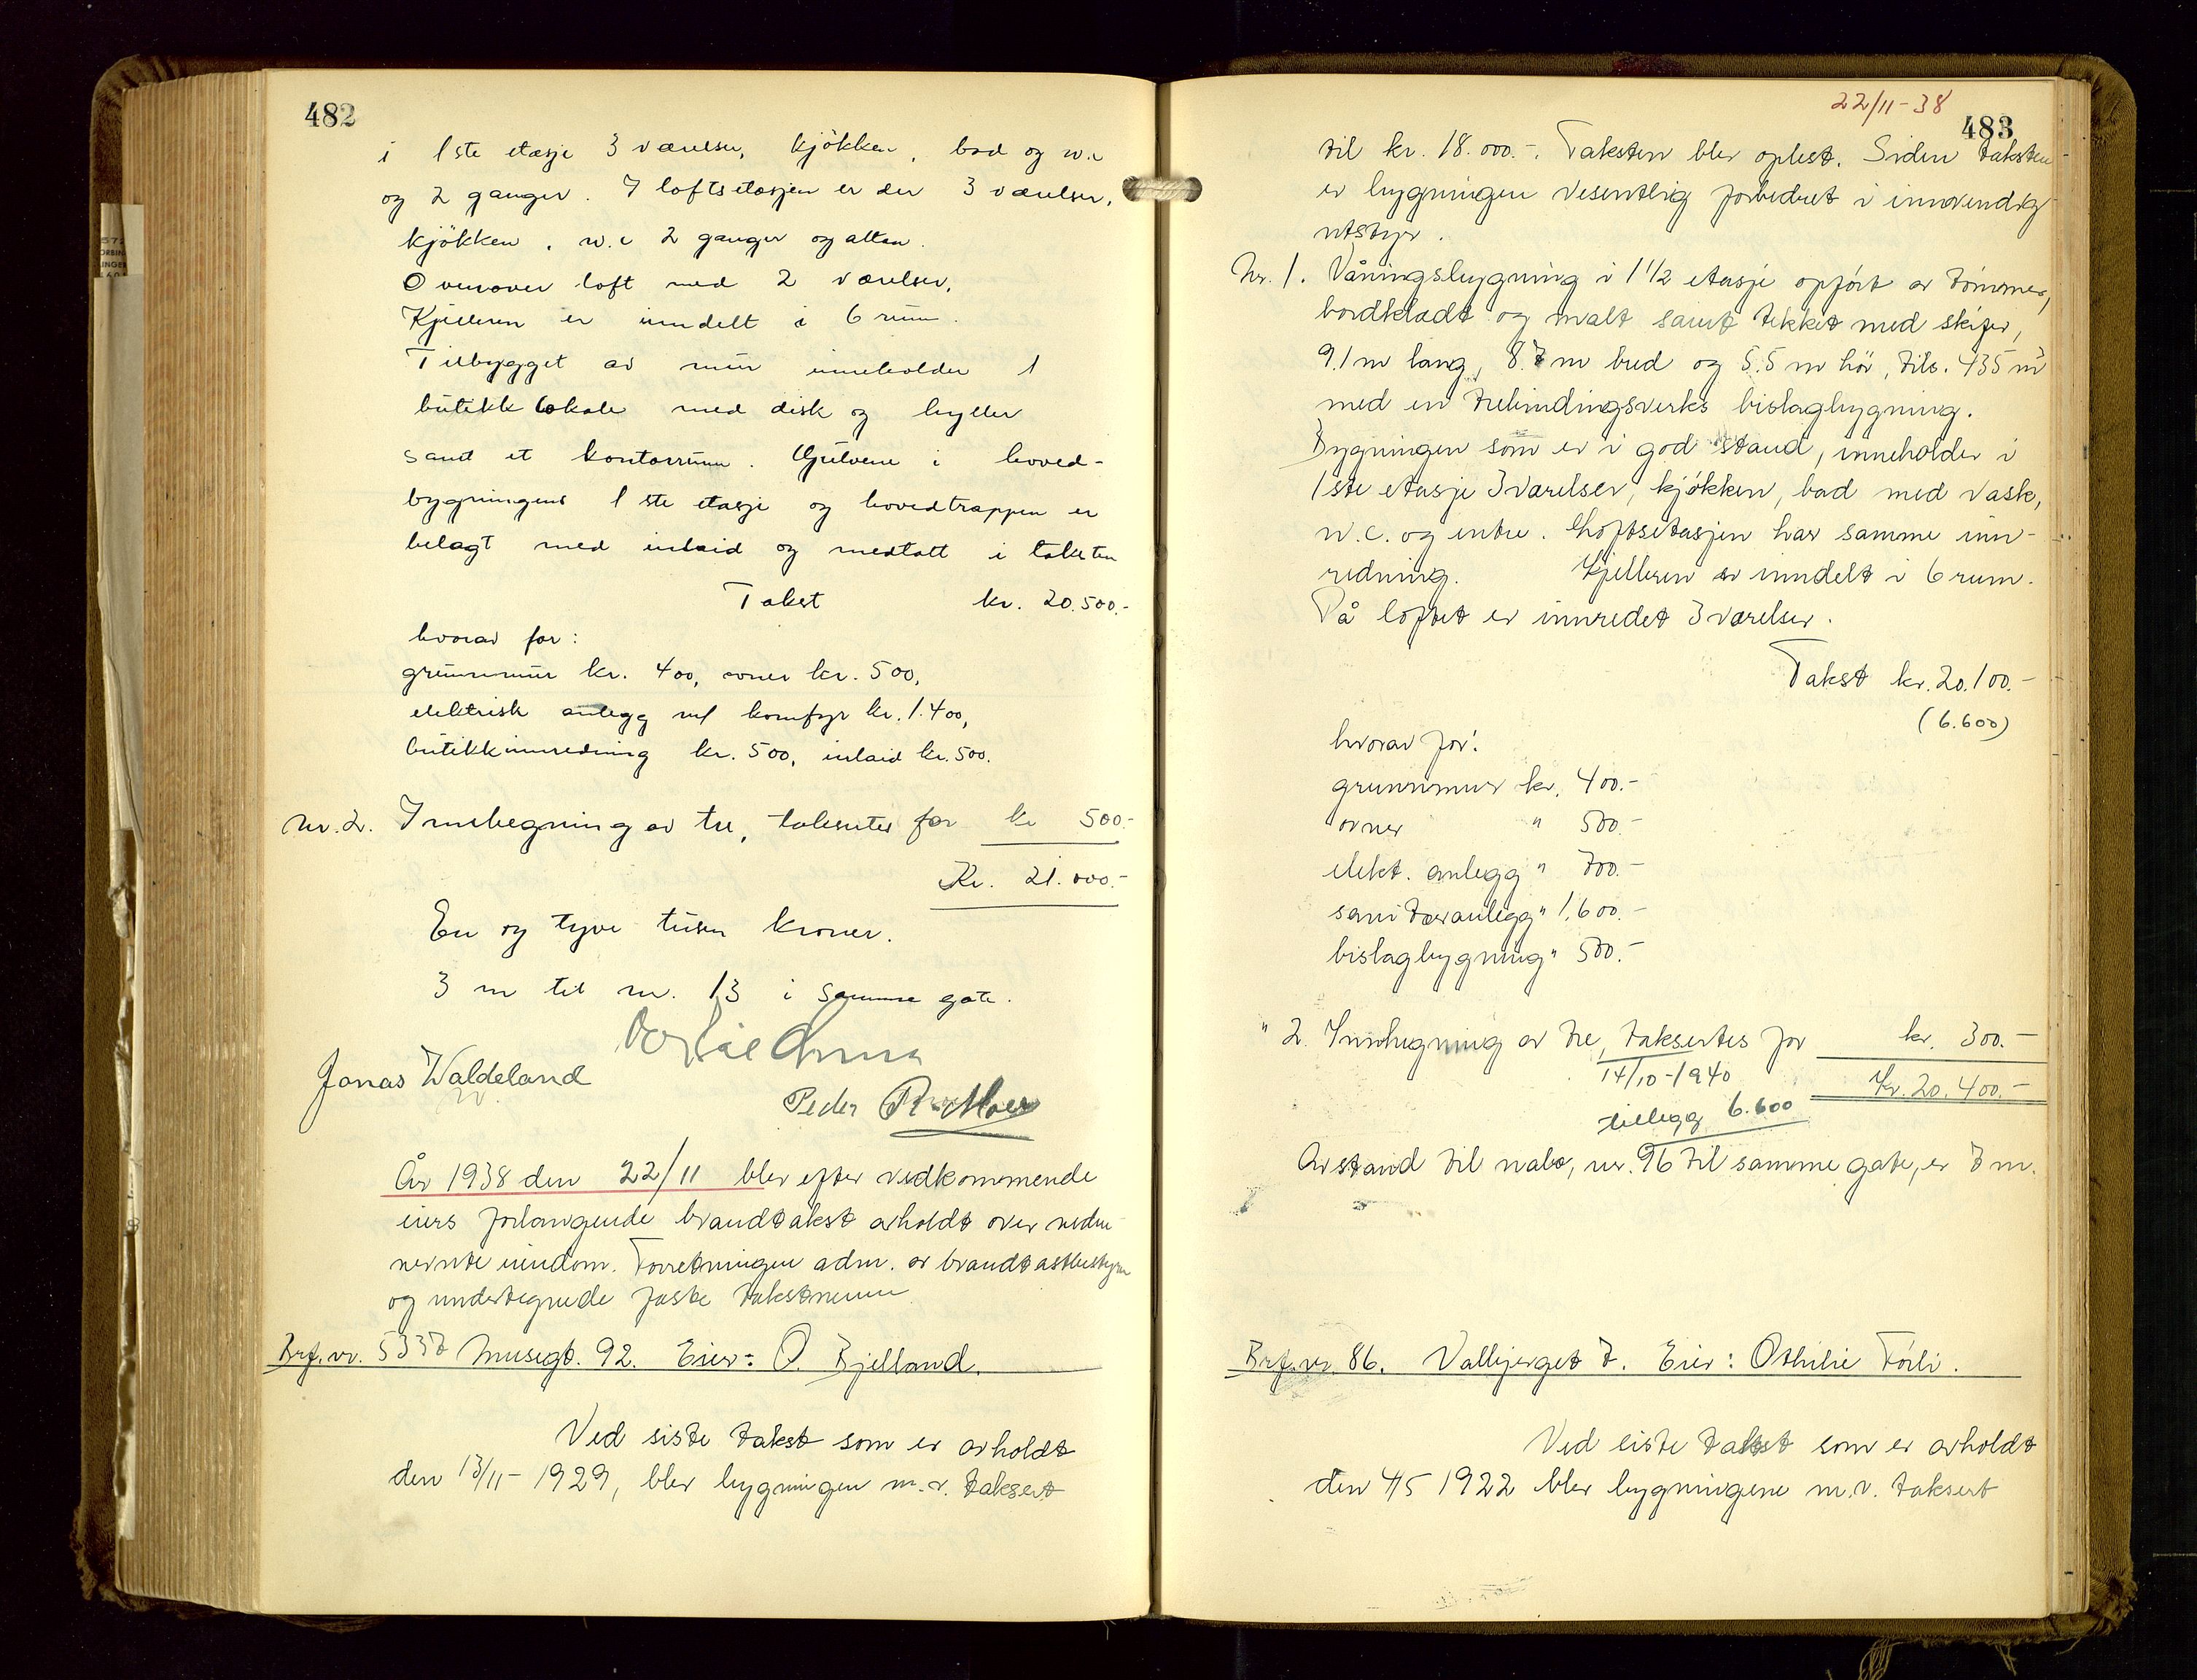 482
i 1ste etasje 3 værelser, kjökken, bad og w.c
og 2 ganger. I loftsetasjen er der 3 værelser,
kjökken, w.c 2 ganger og altan.
Overover loft med 2 værelser.
Kjelleren er inndelt i 6 rum.
Tilbygget av mur inneholder 1
butikklokale med disk og hyller
samt et kontorrum. Gulvene i hoved-
bygningens 1ste etasje og hovedtrappen er
belagt med inlaid og medtatt i taksten
Takst kr. 20.500.-
hvorav for:
grunnmur kr. 400, ovner kr. 500,
elektrisk anlegg m/ komfyr kr. 1.400,
butikkinnredning kr. 500, inlaid kr. 500.
Nr. 2. Innhegning av tre, takseres for kr 500.-
Kr. 21.000.-
En og tyve tusen kroner.
3 m til nr. 13 i samme gate.
Jonas Waldeland
Peder
År 1938 den 22/11 blev efter vedkommende
eiers forlangende brandtakst avholdt over neden-
nevnte eiendom. Forretningen adm. av brandtakstbestyrer
og undertegnede faste takstmenn
Brf. nr. 5337 Musegt. 92. Eier: O. Bjelland.
Ved siste takst som er avholdt
den 13/11-1929, blev bygningen m.v. taksert
22/11-38
483
til kr. 18.000.-. Taksten blev oplest. Siden taksten
er bygningen vesentlig forbedret i innvendig
utstyr.
Nr. 1. Våningsbygning i 1 1/2 etasje opført av tömmer,
bordklædt og malt samt tekket med skifer,
9.1 m lang, 8.7 m bred og 5.5 m höi, tils. 435 m³
med en trebindingsverks bislagbygning.
Bygningen som er i god stand, inneholder i
1ste etasje 3 værelser, kjøkken, bad med vask,
w.c. og entre. Loftsetasjen har samme inn-
redning. Kjelleren er inndelt i 6 rum.
På loftet er innredet 3 værelser.
Takst kr. 20.100.-
(6.600)
hvorav for:
grunnmur kr. 400.-
ovner " 500.-
elekt. anlegg " 700.-
sanitæranlegg " 1.600.-
bislagbygning " 500.-
" 2. Innhegning av tre, taksertes for kr. 300.-
14/10-1940
Kr. 20.400.-
tillegg 6.600
Avstand til nabo, nr. 96 til samme gate, er 7 m.
Brf. nr. 86. Vallbjerget 7. Eier: Othilie Törli.
Ved siste takst som er avholdt
den 4/5 1922 blev bygningene m.v. taksert